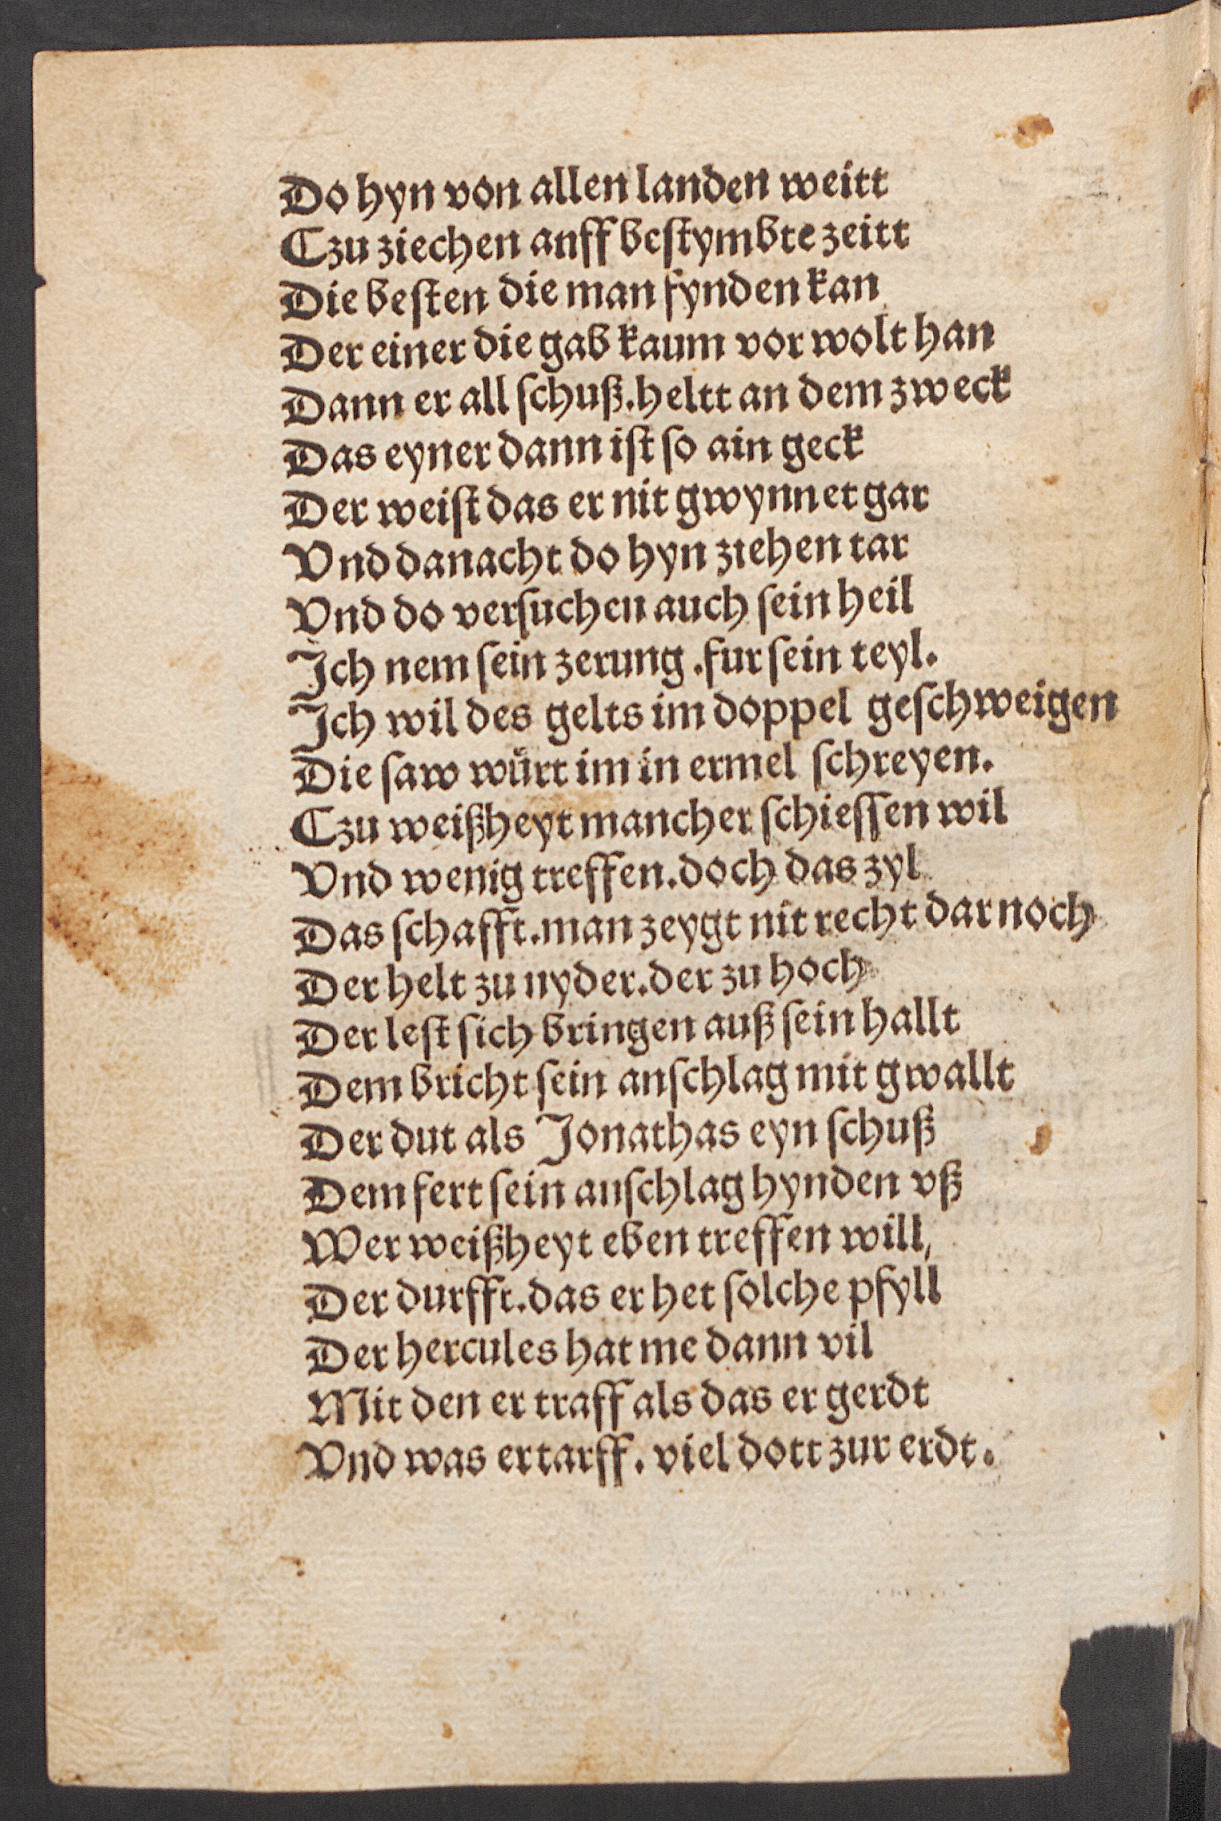 Do hyn von allen landen weitt
Czu ziechen anff bestymbte zeitt
Die besten die man fynden kan
Der einer die gab kaum vor wolt han
Dann er all schuß.heltt an dem zweck
Das eyner dann ist so ain geck
Der weist das er nit gwynnet gar
Vnd danacht do hyn ziehen tar
Vnd do versuchen auch sein heil
Ich nem sein zerung .fur sein teyl.
Ich wil des gelts im doppel geschweigen
Die saw wuͤrt im in ermel schreyen.
Czu weißheyt mancher schiessen wil
Vnd wenig treffen.doch das zyl
Das schafft.man zeygt nit recht dar noch
Der helt zu nyder.der zu hoch
Der lest sich bringen auß sein hallt
Dem bricht sein anschlag mit gwallt
Der dut als Jonathas eyn schuß
Dem fert sein anschlag hynden vß
Wer weißheyt eben treffen will,
Der durfft.das er het solche pfyll
Der hercules hat me dann vil
Mit den er traff als das er gerdt
Vnd was er tarff. viel dott zur erdt.